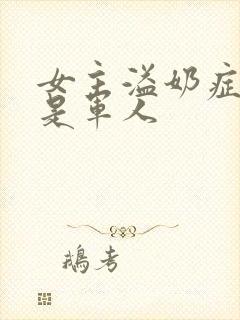 女主溢奶症
是军人
鹅考